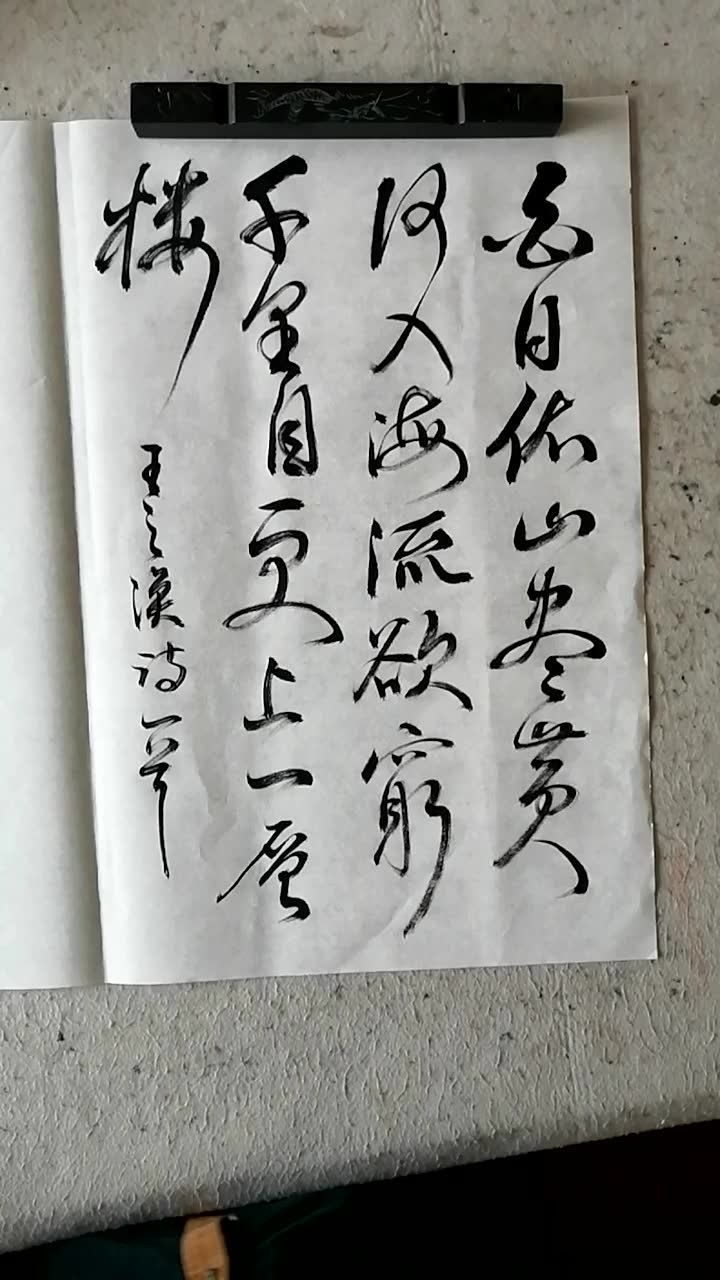 白日依山尽黄
河入海流欲窮
千里目更上一层
楼
王之渙诗一首